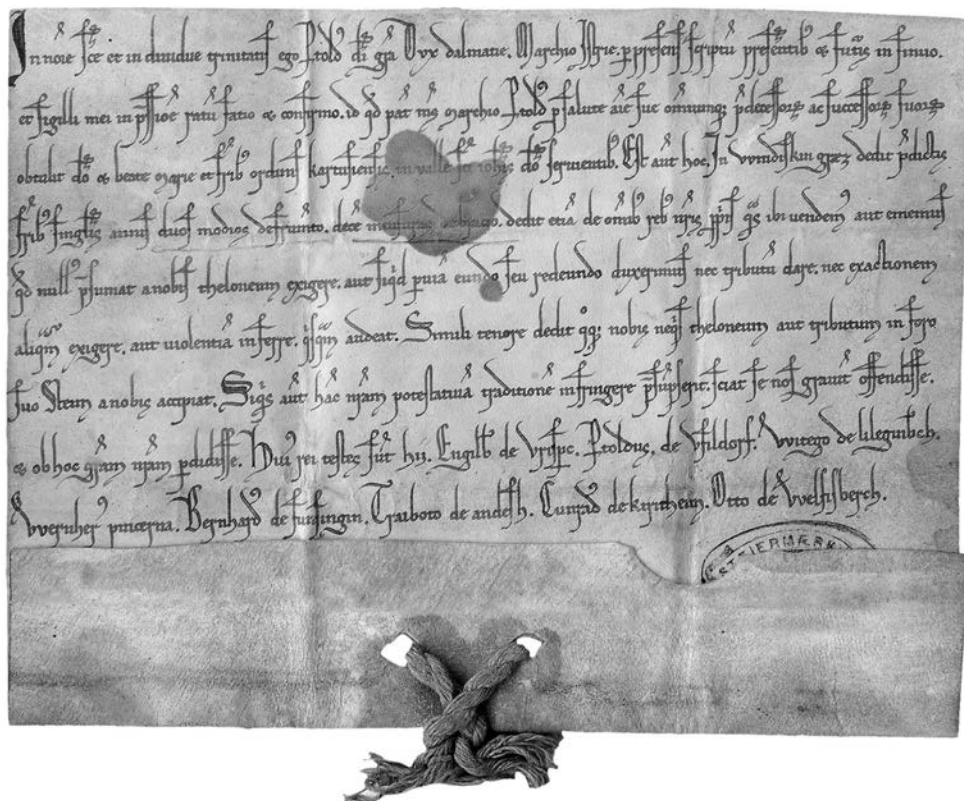 In noīe sc̄e et in dividue trinitatis ego Ptold dī grā Dux dalmatie. Marchio Istrie. p presens scriptū presentib⁊ & futis in sinuo.
et sigilli mei in pssioē ratū facio & confirmo. id qd pat ms marchio Ptold p salute aīe sue omniumq; pdecessoꝝ ac successoꝝ suoꝝ
obtulit dō & beate marie et frib⁊ ordinis kartusiensis. in valle sci iohis dō servientib⁊. Est aut hoc. In vvindiskin graez dedit pdictis
frib⁊ singlis annis duos modios de frumto. decē mensuras de. dedit etiā de omib⁊ reb⁊ nris ppriis qs ibi vendem⁊ aut ememus
qd null⁊ psumat a nobis theloneum exigere. aut siqd p viā eundo seu redeundo duxerimus nec tributū dare. nec exactionem
aliqm exigere. aut violentiā inferre. qsqm audeat. Simili tenore dedit qq; nobis neqs theloneum aut tributum in foro
suo Stein a nobis accipiat. Siqs aut hac nram potestativā traditionē infringere psupserit. sciat se nos gravit offendisse.
& ob hoc gram nram pdidisse. Hui⁊ rei testes sūt hij. Engilb de. Ptoldus. de. Witego de lilegnibch.
Wernher⁊ pincerna. Bernhard de. Traiboto de andesh. Cunrad de kirichem. Otto de Welfisberch.
STEIERMÆRK